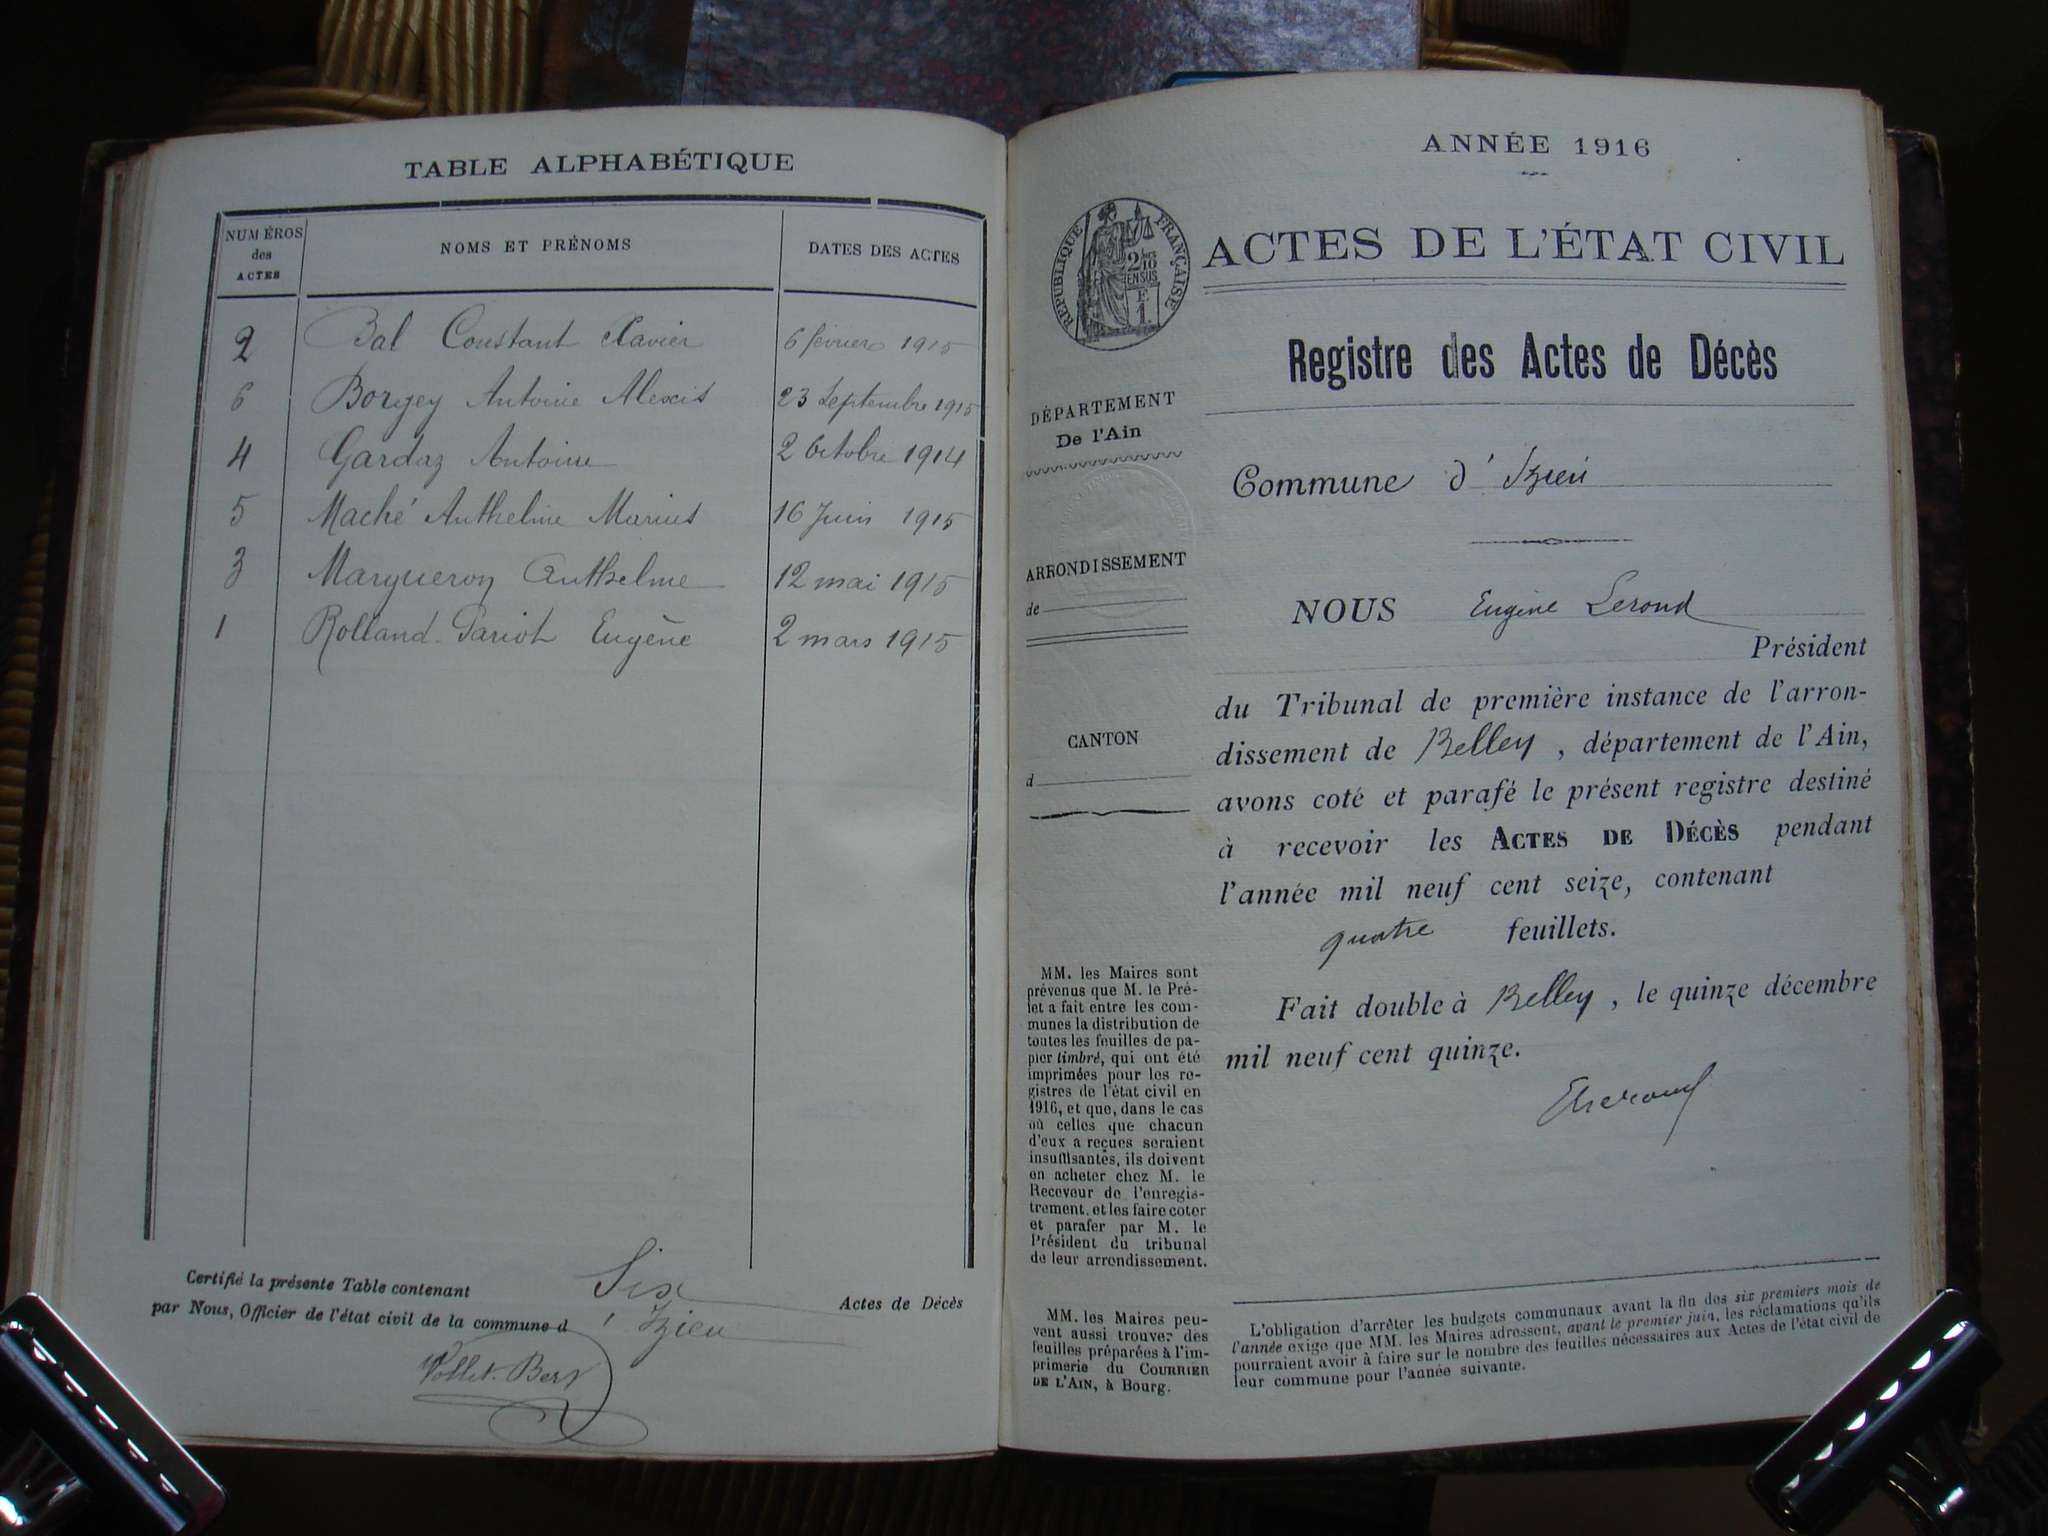 TABLE ALPHABÉTIQUE
NUMÉROS des ACTES
NOMS ET PRÉNOMS
DATES DES ACTES
2 Bal Constant Xavier 6 février 1915
6 Borgey Antoine Alexis 23 Septembre 1915
4 Gardaz Antoine 2 Octobre 1914
5 Maché Anthelme Marius 16 Juin 1915
3 Margueron Anthelme 12 mai 1915
1 Rolland-Pariot Eugène 2 mars 1915
Certifié la présente Table contenant Six Actes de Décès
par Nous, Officier de l'état civil de la commune d'Izieu
ANNÉE 1916
RÉPUBLIQUE FRANÇAISE
2/10 EN SUS
F. 1.
ACTES DE L'ÉTAT CIVIL
Registre des Actes de Décès
DÉPARTEMENT
De l'Ain
ARRONDISSEMENT
de
CANTON
d
MM. les Maires sont
prévenus que M. le Pré-
fet a fait entre les com-
munes la distribution de
toutes les feuilles de pa-
pier timbré, qui ont été
imprimées pour les re-
gistres de l'état civil en
1916, et que, dans le cas
où celles que chacun
d'eux a reçues seraient
insuffisantes, ils doivent
en acheter chez M. le
Receveur de l'enregis-
trement, et les faire coter
et parafer par M. le
Président du tribunal
de leur arrondissement.
MM. les Maires peu-
vent aussi trouver des
feuilles préparées à l'im-
primerie du COURRIER
DE L'AIN, à Bourg.
Commune d'Izieu
NOUS Eugène Lerond
Président
du Tribunal de première instance de l'arron-
dissement de Belley, département de l'Ain,
avons coté et parafé le présent registre destiné
à recevoir les ACTES DE DÉCÈS pendant
l'année mil neuf cent seize, contenant
quatre feuillets.
Fait double à Belley, le quinze décembre
mil neuf cent quinze.
ELerond
L'obligation d'arrêter les budgets communaux avant la fin des six premiers mois de
l'année exige que MM. les Maires adressent, avant le premier juin, les réclamations qu'ils
pourraient avoir à faire sur le nombre des feuilles nécessaires aux Actes de l'état civil de
leur commune pour l'année suivante.